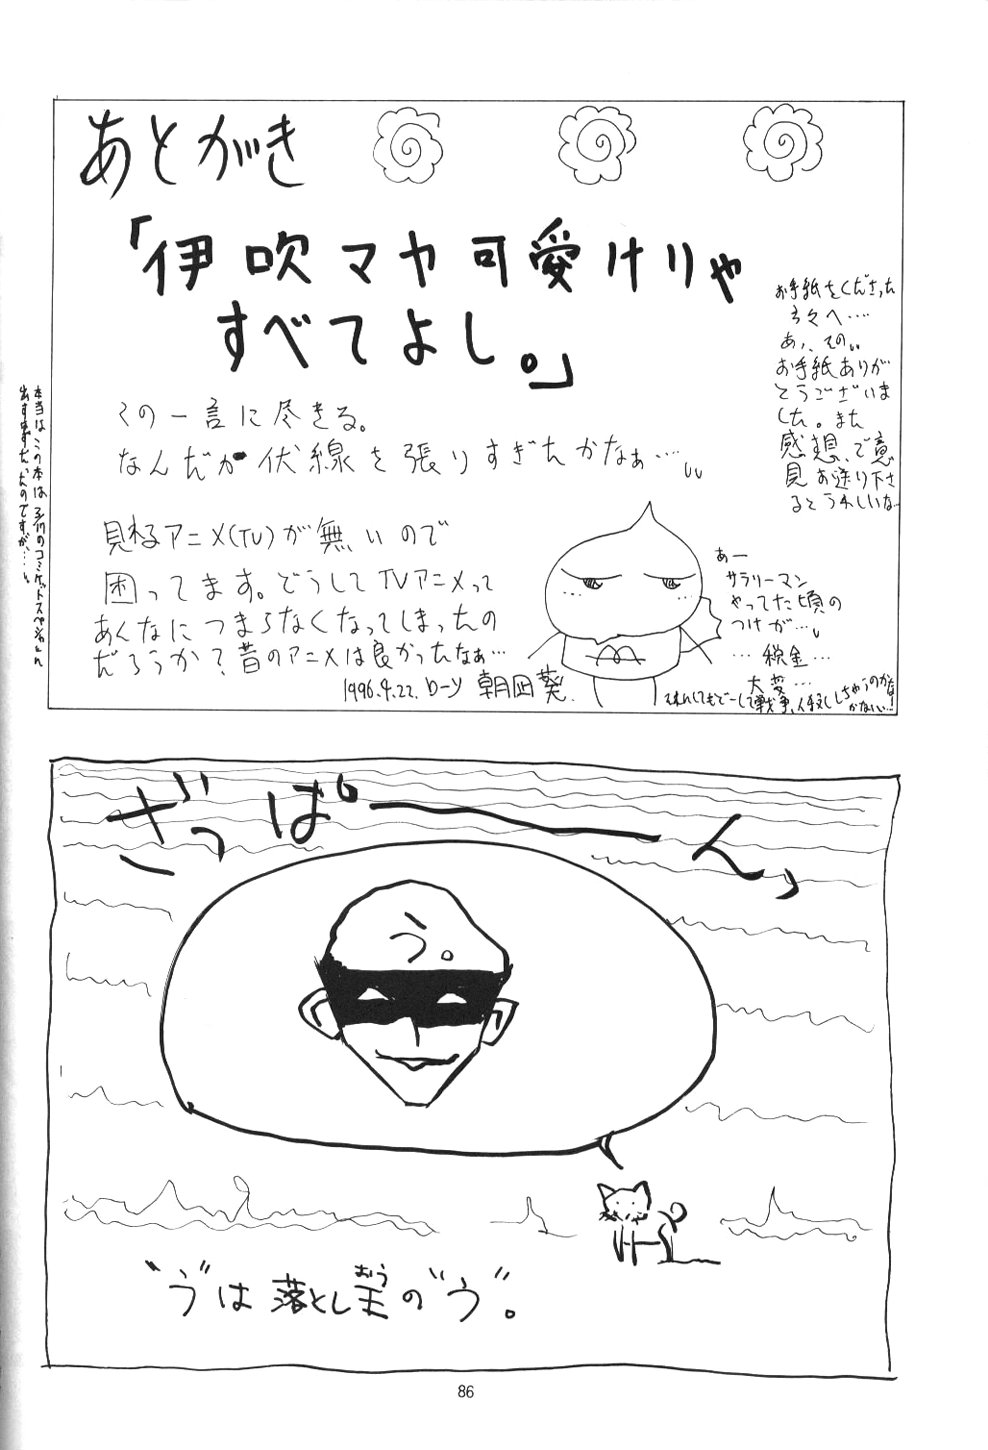 あとがき
「伊吹マヤ可愛けりゃ
すべてよし。」
この一言に尽きる。
なんだか伏線を張りすぎたかなぁ…
見れるアニメ(TV)が無いので
困ってます。どうしてTVアニメって
あんなにつまらなくなってしまったの
だろうか？昔のアニメは良かったなぁ…
1996.4.22. ローソ 朝凪葵.
お手紙をくださった
方々へ…
あ、、その、、
お手紙ありが
とうございま
した。また
感想、ご意
見お送り下さ
るとうれしいな…
あー
サラリーマン
やってた頃の
つけが…
…税金…
大変…
本当はこの本は3/17のコミケットスペシャルに
出すはずだったのですが…
ざっぱーーん
う。
"う"は落とし王の"う"。
おう
86